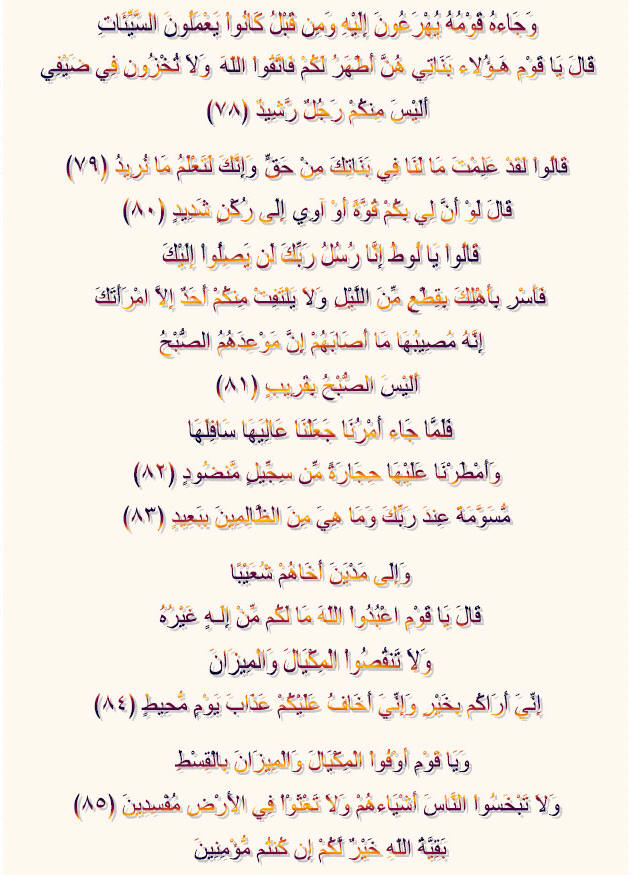 وَجَاءهُ قَوْمُهُ يُهْرَعُونَ إِلَيْهِ وَمِن قَبْلُ كَانُواْ يَعْمَلُونَ السَّيِّئَاتِ
قَالَ يَا قَوْمِ هَـؤُلاء بَنَاتِي هُنَّ أَطْهَرُ لَكُمْ فَاتَّقُواْ اللهَ وَلاَ تُخْزُونِ فِي ضَيْفِي
أَلَيْسَ مِنكُمْ رَجُلٌ رَّشِيدٌ (٧٨)
قَالُواْ لَقَدْ عَلِمْتَ مَا لَنَا فِي بَنَاتِكَ مِنْ حَقٍّ وَإِنَّكَ لَتَعْلَمُ مَا نُرِيدُ (٧٩)
قَالَ لَوْ أَنَّ لِي بِكُمْ قُوَّةً أَوْ آوِي إِلَى رُكْنٍ شَدِيدٍ (٨٠)
قَالُواْ يَا لُوطُ إِنَّا رُسُلُ رَبِّكَ لَن يَصِلُواْ إِلَيْكَ
فَأَسْرِ بِأَهْلِكَ بِقِطْعٍ مِّنَ اللَّيْلِ وَلاَ يَلْتَفِتْ مِنكُمْ أَحَدٌ إِلاَّ امْرَأَتَكَ
إِنَّهُ مُصِيبُهَا مَا أَصَابَهُمْ إِنَّ مَوْعِدَهُمُ الصُّبْحُ
أَلَيْسَ الصُّبْحُ بِقَرِيبٍ (٨١)
فَلَمَّا جَاء أَمْرُنَا جَعَلْنَا عَالِيَهَا سَافِلَهَا
وَأَمْطَرْنَا عَلَيْهَا حِجَارَةً مِّن سِجِّيلٍ مَّنضُودٍ (٨٢)
مُّسَوَّمَةً عِندَ رَبِّكَ وَمَا هِيَ مِنَ الظَّالِمِينَ بِبَعِيدٍ (٨٣)
وَإِلَى مَدْيَنَ أَخَاهُمْ شُعَيْبًا
قَالَ يَا قَوْمِ اعْبُدُواْ اللهَ مَا لَكُم مِّنْ إِلَـهٍ غَيْرُهُ
وَلاَ تَنقُصُواْ الْمِكْيَالَ وَالْمِيزَانَ
إِنِّيَ أَرَاكُم بِخَيْرٍ وَإِنِّيَ أَخَافُ عَلَيْكُمْ عَذَابَ يَوْمٍ مُّحِيطٍ (٨٤)
وَيَا قَوْمِ أَوْفُواْ الْمِكْيَالَ وَالْمِيزَانَ بِالْقِسْطِ
وَلاَ تَبْخَسُواْ النَّاسَ أَشْيَاءهُمْ وَلاَ تَعْثَوْاْ فِي الأَرْضِ مُفْسِدِينَ (٨٥)
بَقِيَّةُ اللهِ خَيْرٌ لَّكُمْ إِن كُنتُم مُّؤْمِنِينَ